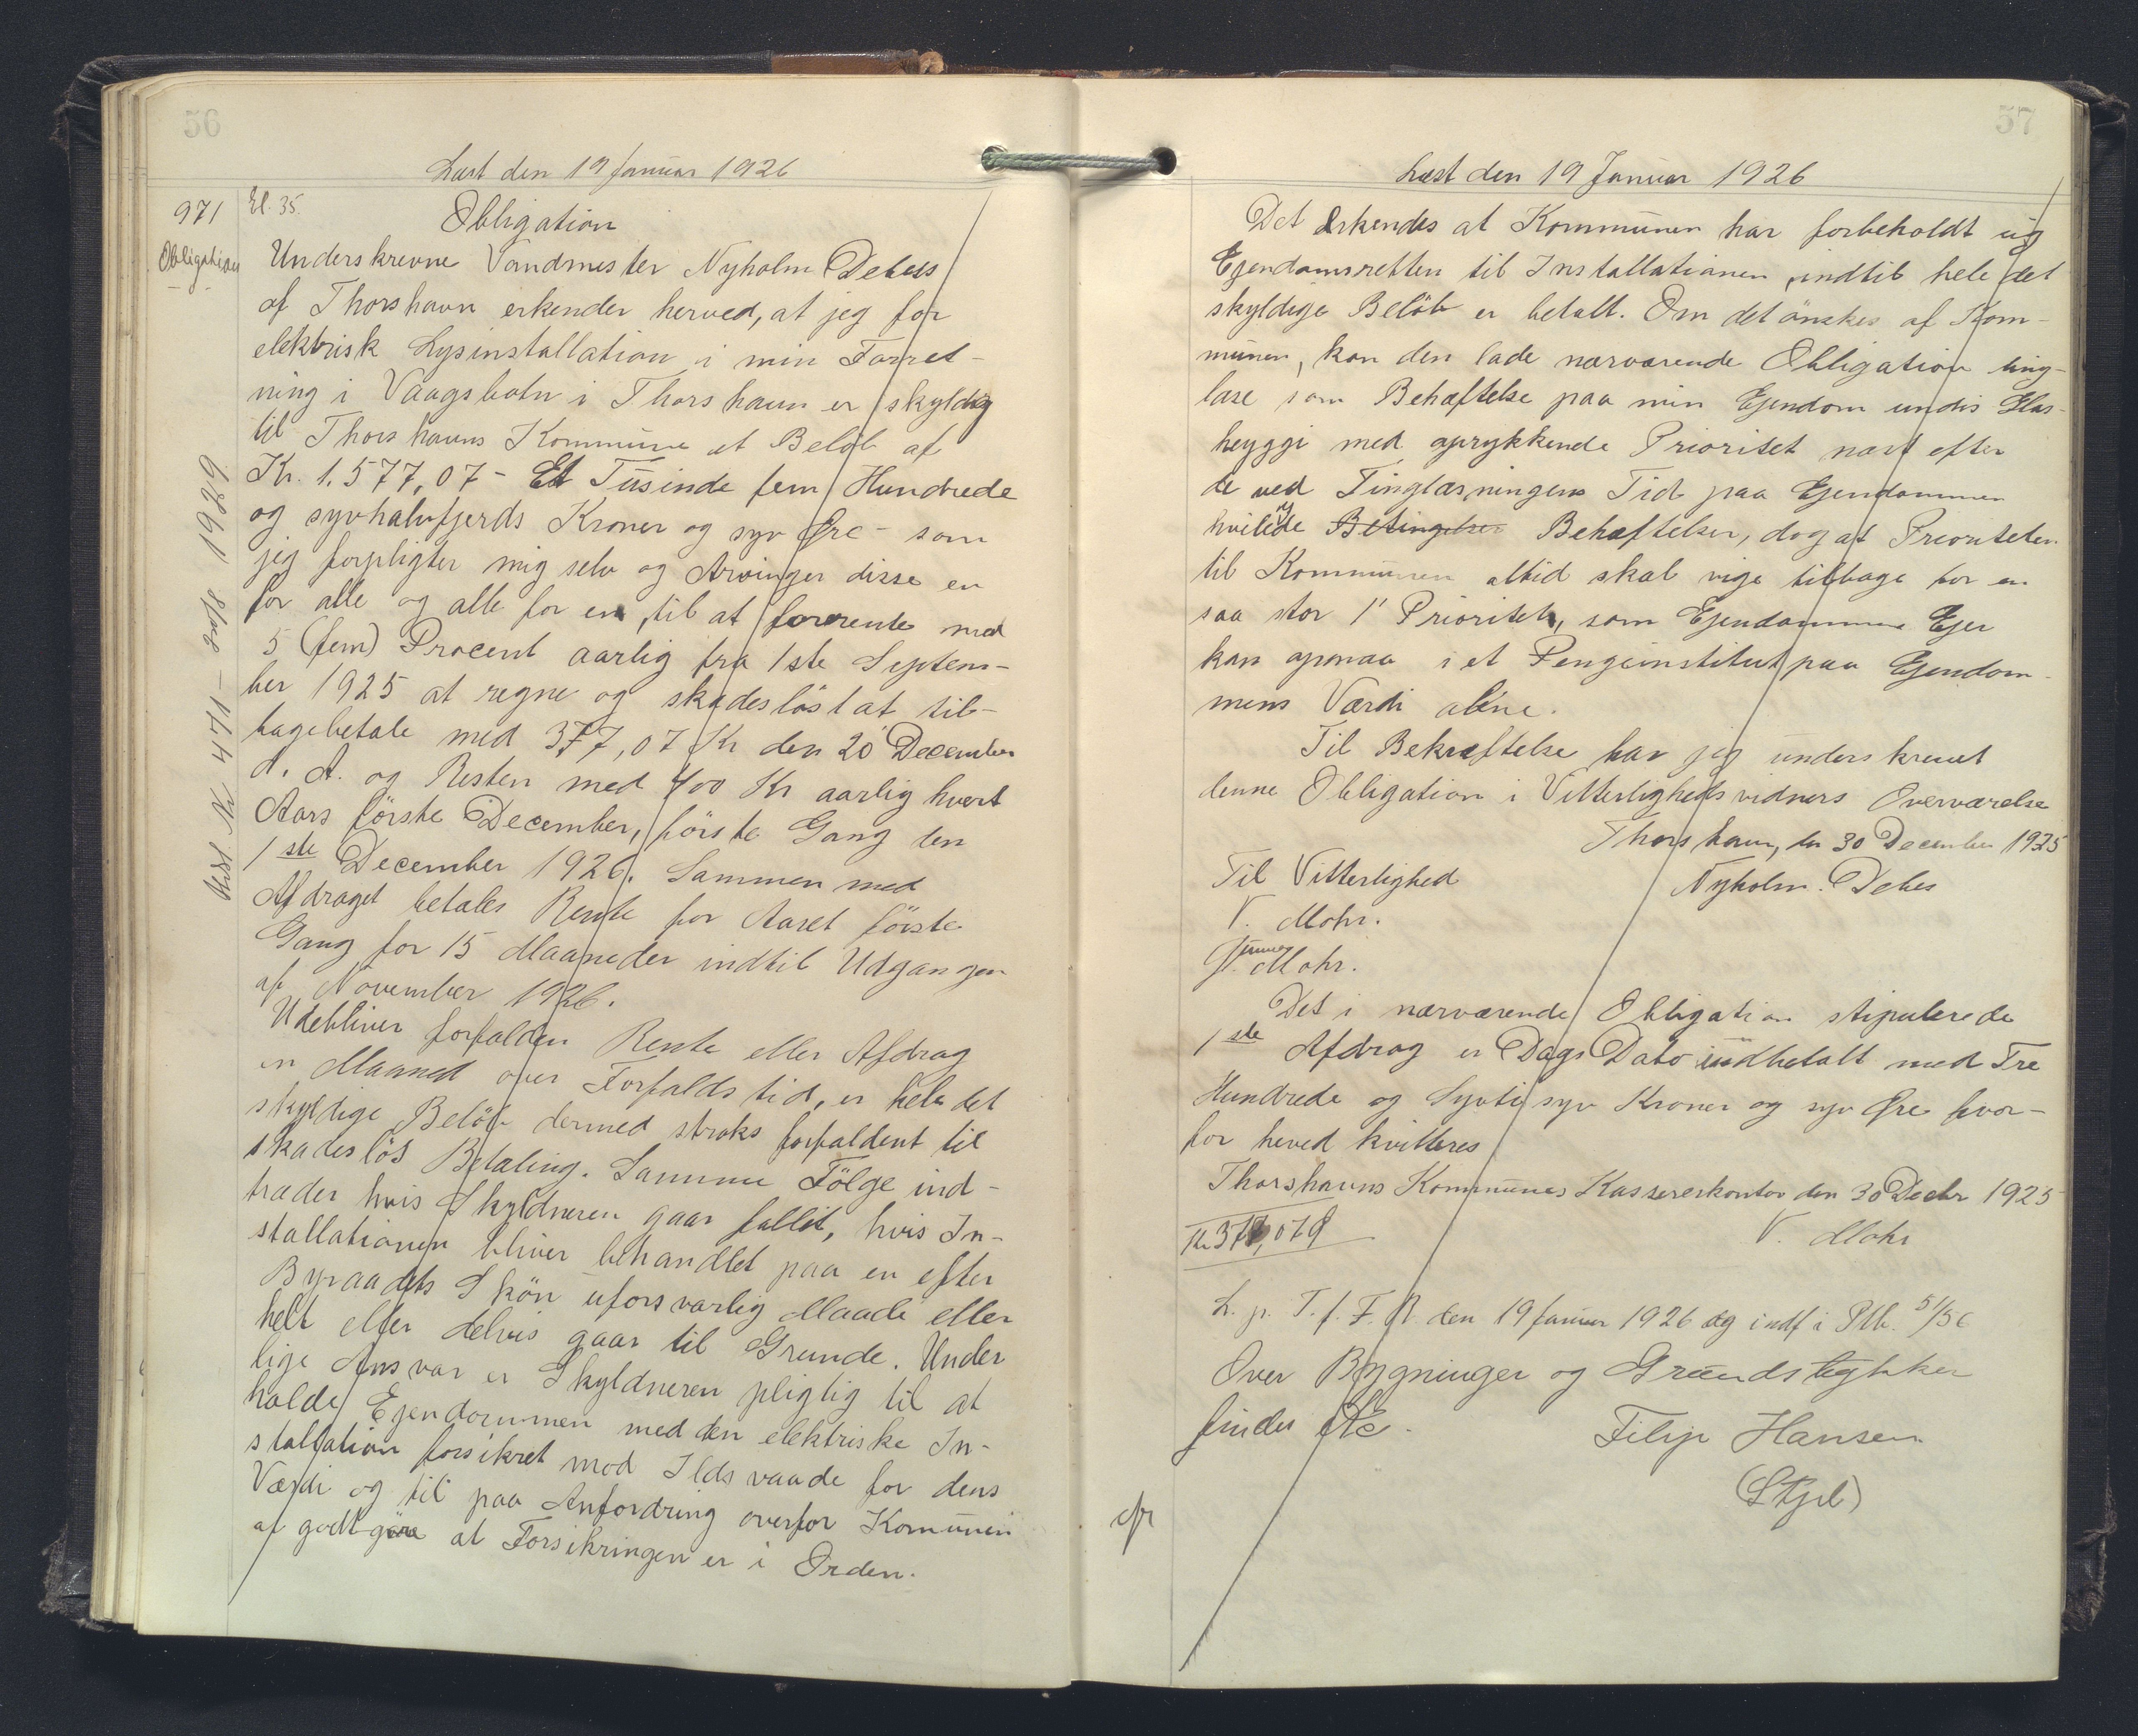 56
Læst den 19 Januar 1926
971
El. 35
Obligation
Obligation
Underskrevne Vandmester Nyholm Debes
af Thorshavn erkender herved, at jeg for
elektrisk Lysinstallation i min Forret-
ning i Vaagsbotn i Thorshavn er skyldig
til Thorshavns Kommune et Beløb af
Kr. 1.577,07 - Et Tusinde fem Hundrede
og syvhalvfjerds Kroner og syv Øre - som
jeg forpligter mig selv og Arvinger disse en
for alle og alle for en, til at forrente med
5 (fem) Procent aarlig fra 1ste Septem-
ber 1925 at regne og skadesløst at til-
bagebetale med 377,07 Kr den 20' December
d. A. og Resten med 400 Kr aarlig hvert
Aars förste December, förste Gang den
1ste December 1926. Sammen med
Afdraget betales Rente for Aaret förste
Gang for 15 Maaneder indtil Udgangen
af November 1926.
Udebliver forfalden Rente eller Afdrag
en Maaned over Forfaldstid, er hele det
skyldige Belöb dermed straks forfaldent til
skadeslös Betaling. Samme Fölge ind-
træder hvis Skyldneren gaar fallit, hvis In-
stallationen bliver behandlet paa en efter
Byraadets Skön uforsvarlig Maade eller
helt eller delvis gaar til Grunde. Under
lige Ansvar er Skyldneren pligtig til at
holde Ejendommen med den elektriske In-
stallation forsikret mod Ildsvaade for dens
Værdi og til paa Anfordring overfor Komunen
at godtgöre at Forsikringen er i Orden.
57
Læst den 19 Januar 1926
Det Erkendes at Kommunen har forbeholdt sig
Ejendomsretten til Installationen, indtil hele det
skyldige Belöb er betalt. Om det önskes af Kom-
munen, kan den lade nærværende Obligation ting-
læse som Behæftelse paa min Ejendom undir Glas-
heyggi med oprykkende Prioritet næst efter
de ved Tinglæsningens Tid paa Ejendommen
hvilende Betingelser Behæftelser, dog at Prioriteten
til Kommunen altid skal vige tilbage for en
saa stor 1' Prioritet, som Ejendommens Ejer
kan opnaa i et Pengeinstitut paa Ejendom-
mens Værdi alene.
Til Bekræftelse har jeg underskrevet
denne Obligation i Vitterlighedsvidners Overværelse
Thorshavn, den 30 December 1925
Til Vitterlighed
Nyholm. Debes
V. Mohr.
Mohr.
Det i nærværende Obligation stipulerede
1ste Afdrag er Dags Dato indbetalt med Tre
Hundrede og Syvti syv Kroner og syv Øre hvor-
for heved kvitteres
Thorshavns Kommunes Kassererkontor den 30 Decbr 1925
Kr 377,07
V. Mohr
L. p. T. f. F. R. den 19 Januar 1926 og indf i Ptb. 51/56
Over Bygninger og Grundstykker
findes
Filip Hansen
(Stpl)
cfr